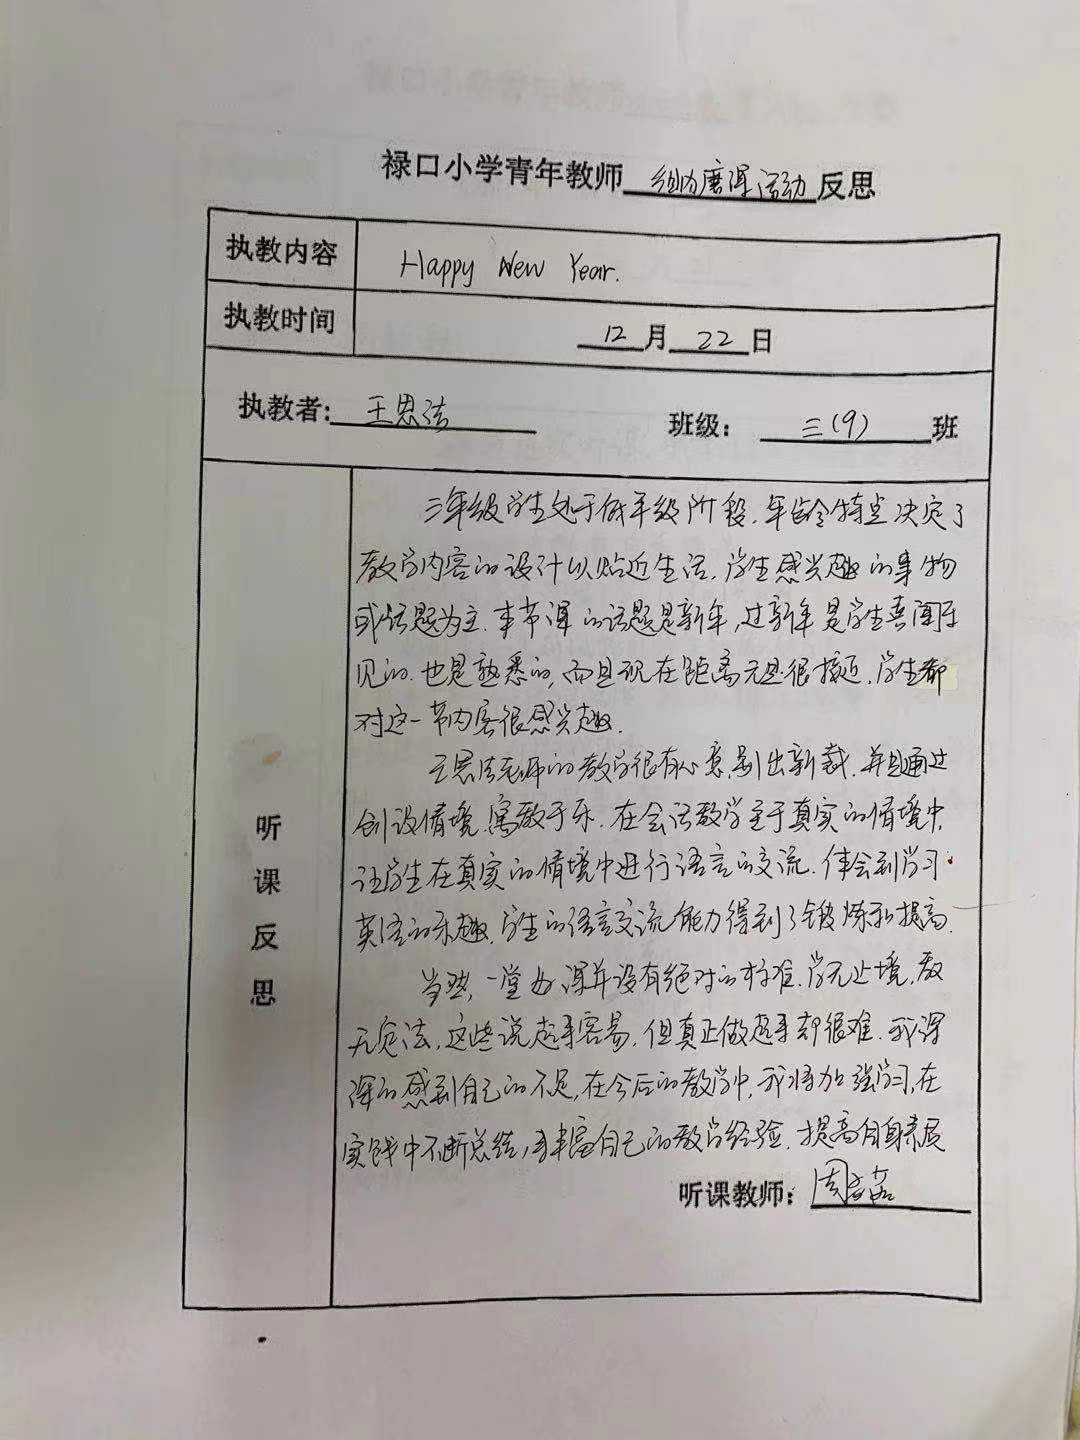 禄口小学青年教师 组内磨课活动 反思
执教内容 Happy New Year.
执教时间 12月22日
执教者: 王思洁 班级: 三(9) 班
听课反思
三年级学生处于低年级阶段,年龄特点决定了
教学内容的设计以贴近生活,学生感兴趣的事物
或话题为主.本节课的话题是新年,过新年是学生喜闻乐
见的.也是熟悉的,而且现在距离元旦很接近,学生都
对这一节内容很感兴趣.
王思洁老师的教学很有心意,别出新裁.并且通过
创设情境,寓教于乐.在会话教学至于真实的情境中,
让学生在真实的情境中进行语言的交流.体会到学习
英语的乐趣,学生的语言交流能力得到了锻炼和提高.
当然,一堂好课并没有绝对的标准.学无止境,教
无定法,这些说起来容易,但真正做起来却很难.我深
深的感到自己的不足,在今后的教学中,我将加强学习,在
实践中不断总结,丰富自己的教学经验.提高自身素质
听课教师: 周